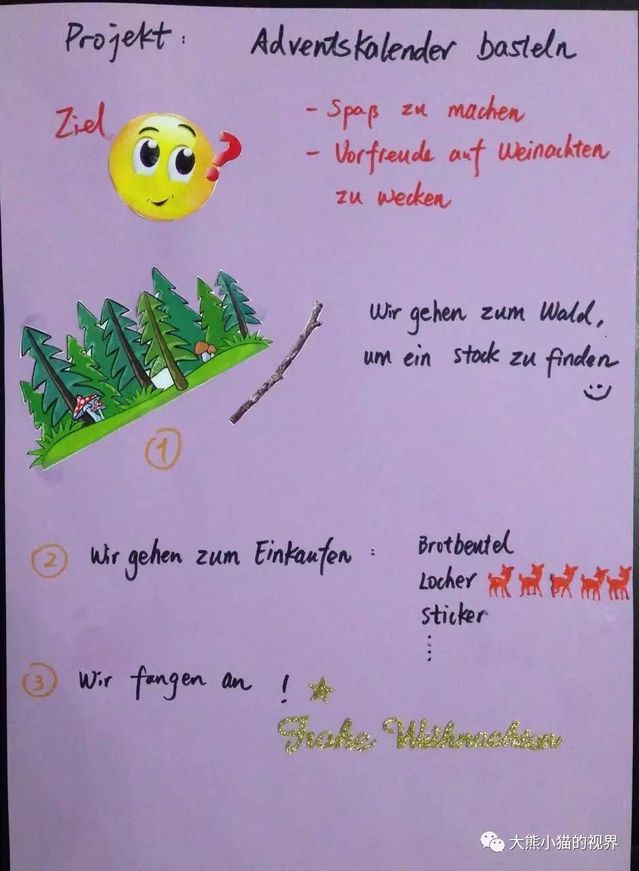 Projekt: Adventskalender basteln
Ziel
- Spaß zu machen
- Vorfreude auf Weinachten
zu wecken
Wir gehen zum Wald,
um ein stock zu finden
1
2 Wir gehen zum Einkaufen:
Brotbeutel
Locher
Sticker
...
3 Wir fangen an!
Frohe Weihnachten
大熊小猫的视界